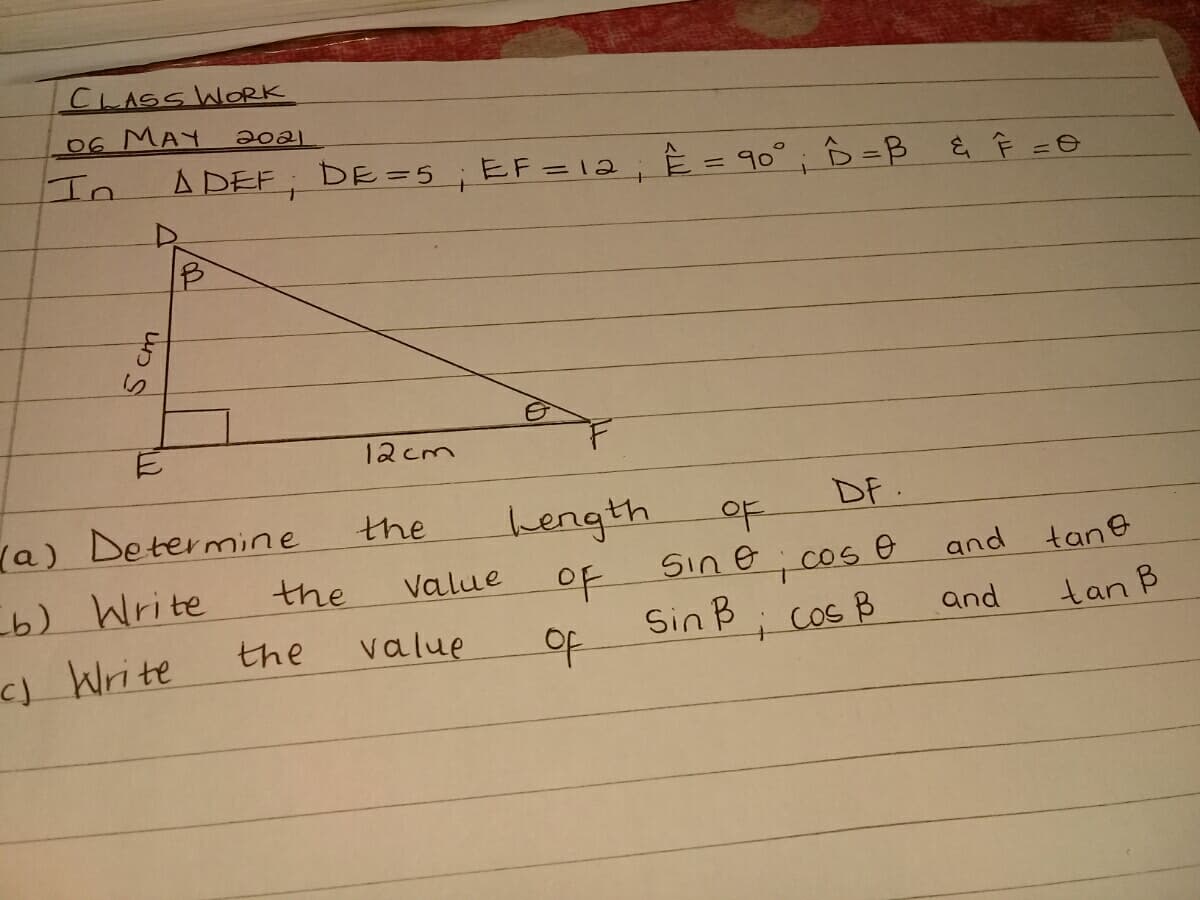 CLASS WORK
06 MAY 2021
In Δ DEF; DE = 5 ; EF = 12 ; Ê = 90° ; D̂ = β & F̂ = θ
D
β
5 cm
θ
E
12 cm
F
(a) Determine the Length OF DF.
(b) Write the value OF Sin θ ; cos θ and tan θ
c) Write the value Of Sin β ; cos β and tan β